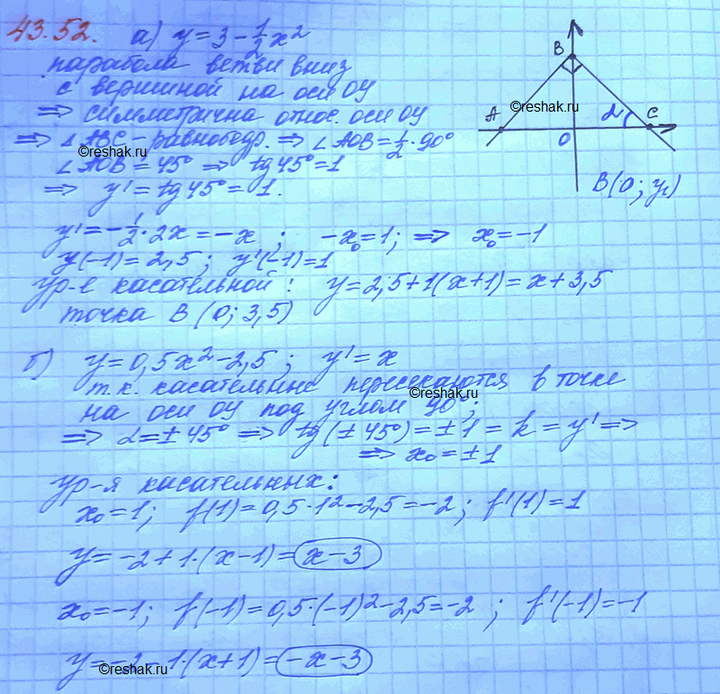 43.52. а) y = 3 - 1/2 x²
парабола ветви вниз
с вершиной на оси OY
⇒ симметрична относ. оси OY
⇒ △ABC - равнобедр. ⇒ ∠AOB = 1/2 · 90°
∠AOB = 45° ⇒ tg 45° = 1
⇒ y' = tg 45° = 1.
B
A
α
C
O
B(0; y₁)
©reshak.ru
©reshak.ru
y' = -1/2 · 2x = -x ; -x₀ = 1; ⇒ x₀ = -1
y(-1) = 2,5 ; y'(-1) = 1
ур-е касательной : y = 2,5 + 1(x+1) = x + 3,5
точка B (0; 3,5)
б) y = 0,5x² - 2,5 ; y' = x
т.к. касательные пересекаются в точке
на оси OY под углом 90°;
©reshak.ru
⇒ α = ±45° ⇒ tg(±45°) = ±1 = k = y' ⇒
⇒ x₀ = ±1
ур-я касательных:
x₀ = 1; f(1) = 0,5·1² - 2,5 = -2 ; f'(1) = 1
y = -2 + 1·(x-1) = x-3
x₀ = -1; f(-1) = 0,5·(-1)² - 2,5 = -2 ; f'(-1) = -1
y = -2 - 1·(x+1) = -x-3
©reshak.ru